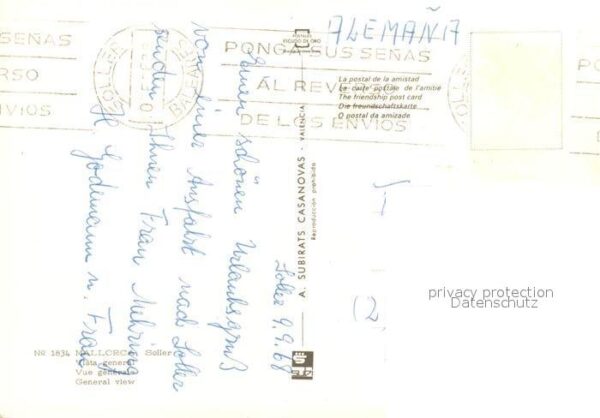 ALEMAÑIA
PONGA SUS SEÑAS
AL REVERSO
DE LOS ENVIOS
SEÑAS
ERSO
NVIOS
SOLLER
BALEARES
PO
La postal de la amistad
La carte postale de l'amitie
The friendship post card
Die freundschaftskarte
O postal da amizade
Soller 9.9.68
Einen schönen Urlaubsgruß
von einer Ausfahrt nach Soller
senden Ihnen Frau Mehring
H. Godemann u. Frau
A. SUBIRATS CASANOVAS - VALENCIA
Reproducción prohibida
(2
privacy protection
Datenschutz
No 1834 MALLORCA Soller
Vista general
Vue générale
General view